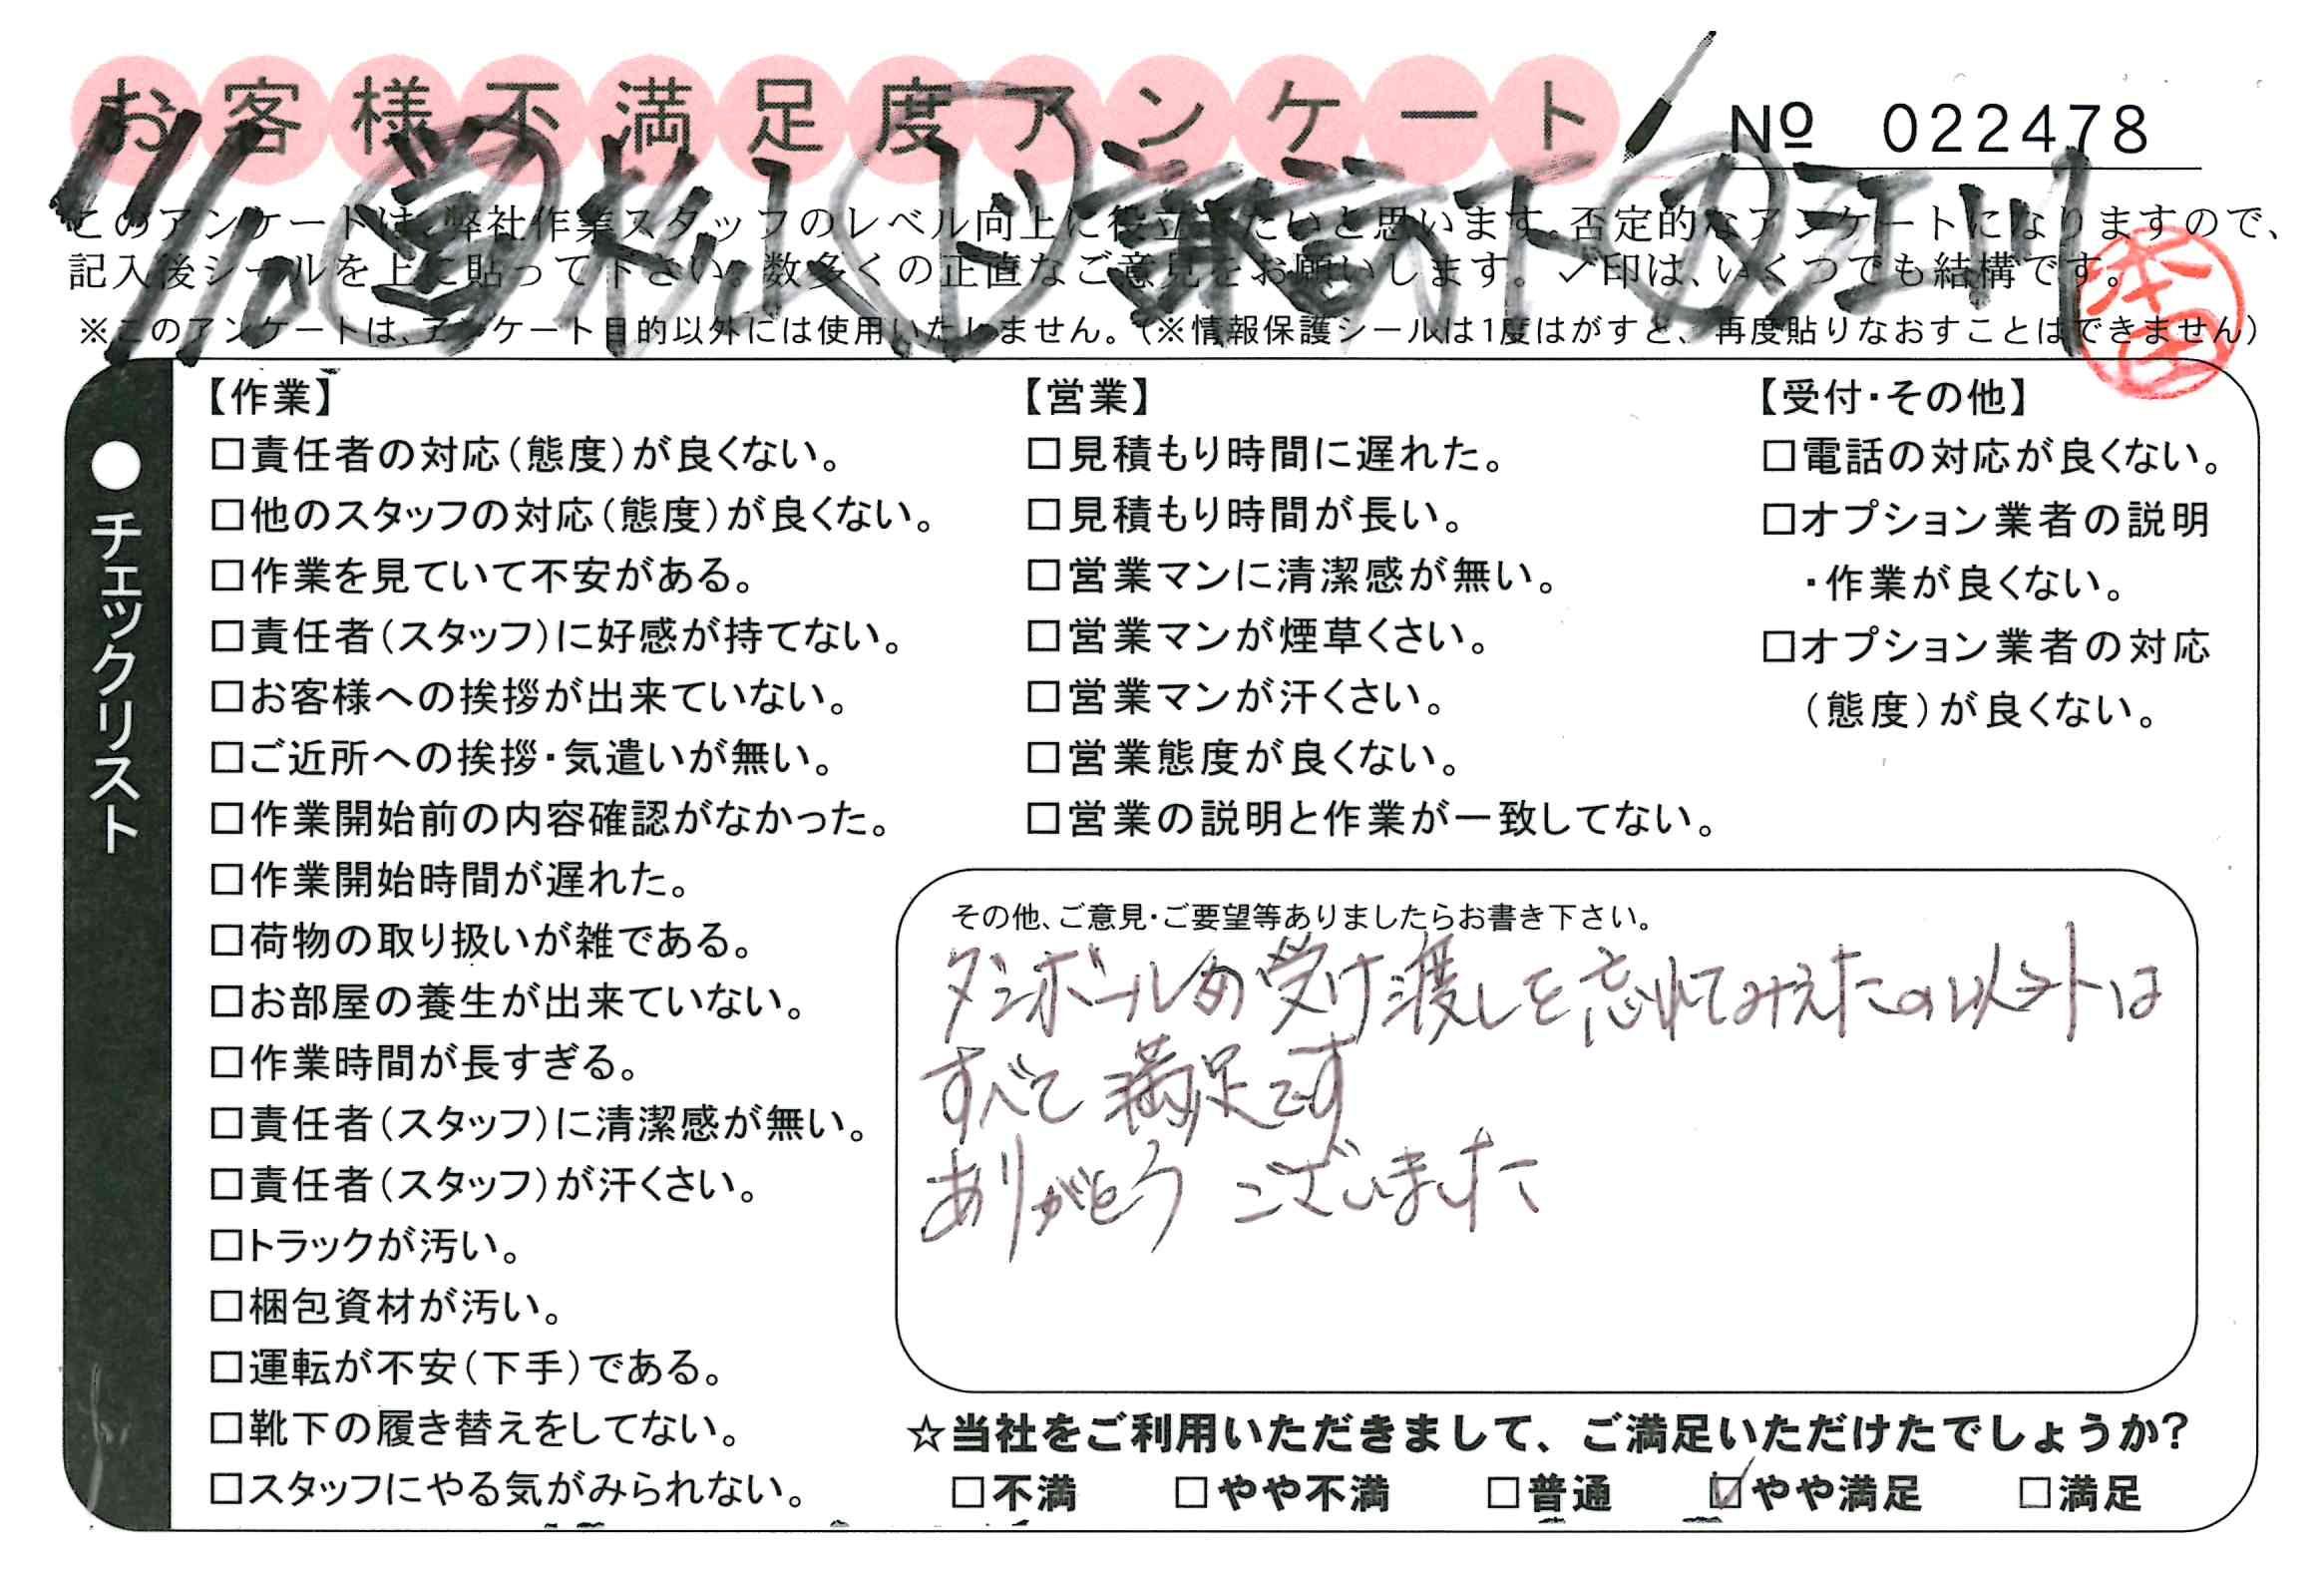 お客様不満足度アンケート
№ 022478
11/10 営 松人 リ 諏訪下 江川
このアンケートは、弊社作業スタッフのレベル向上に役立てたいと思います。否定的なアンケートになりますので、
記入後シールを上に貼って下さい。数多くの正直なご意見をお願いします。✓印は、いくつでも結構です。
※このアンケートは、アンケート目的以外には使用いたしません。(※情報保護シールは1度はがすと、再度貼りなおすことはできません)
●チェックリスト
【作業】
□責任者の対応(態度)が良くない。
□他のスタッフの対応(態度)が良くない。
□作業を見ていて不安がある。
□責任者(スタッフ)に好感が持てない。
□お客様への挨拶が出来ていない。
□ご近所への挨拶・気遣いが無い。
□作業開始前の内容確認がなかった。
□作業開始時間が遅れた。
□荷物の取り扱いが雑である。
□お部屋の養生が出来ていない。
□作業時間が長すぎる。
□責任者(スタッフ)に清潔感が無い。
□責任者(スタッフ)が汗くさい。
□トラックが汚い。
□梱包資材が汚い。
□運転が不安(下手)である。
□靴下の履き替えをしてない。
□スタッフにやる気がみられない。
【営業】
□見積もり時間に遅れた。
□見積もり時間が長い。
□営業マンに清潔感が無い。
□営業マンが煙草くさい。
□営業マンが汗くさい。
□営業態度が良くない。
□営業の説明と作業が一致してない。
【受付・その他】
□電話の対応が良くない。
□オプション業者の説明
・作業が良くない。
□オプション業者の対応
(態度)が良くない。
その他、ご意見・ご要望等ありましたらお書き下さい。
ダンボールの受け渡しを忘れてみえたの以外は
すべて満足です
ありがとうございました
☆当社をご利用いただきまして、ご満足いただけたでしょうか?
□不満 □やや不満 □普通 ☑やや満足 □満足